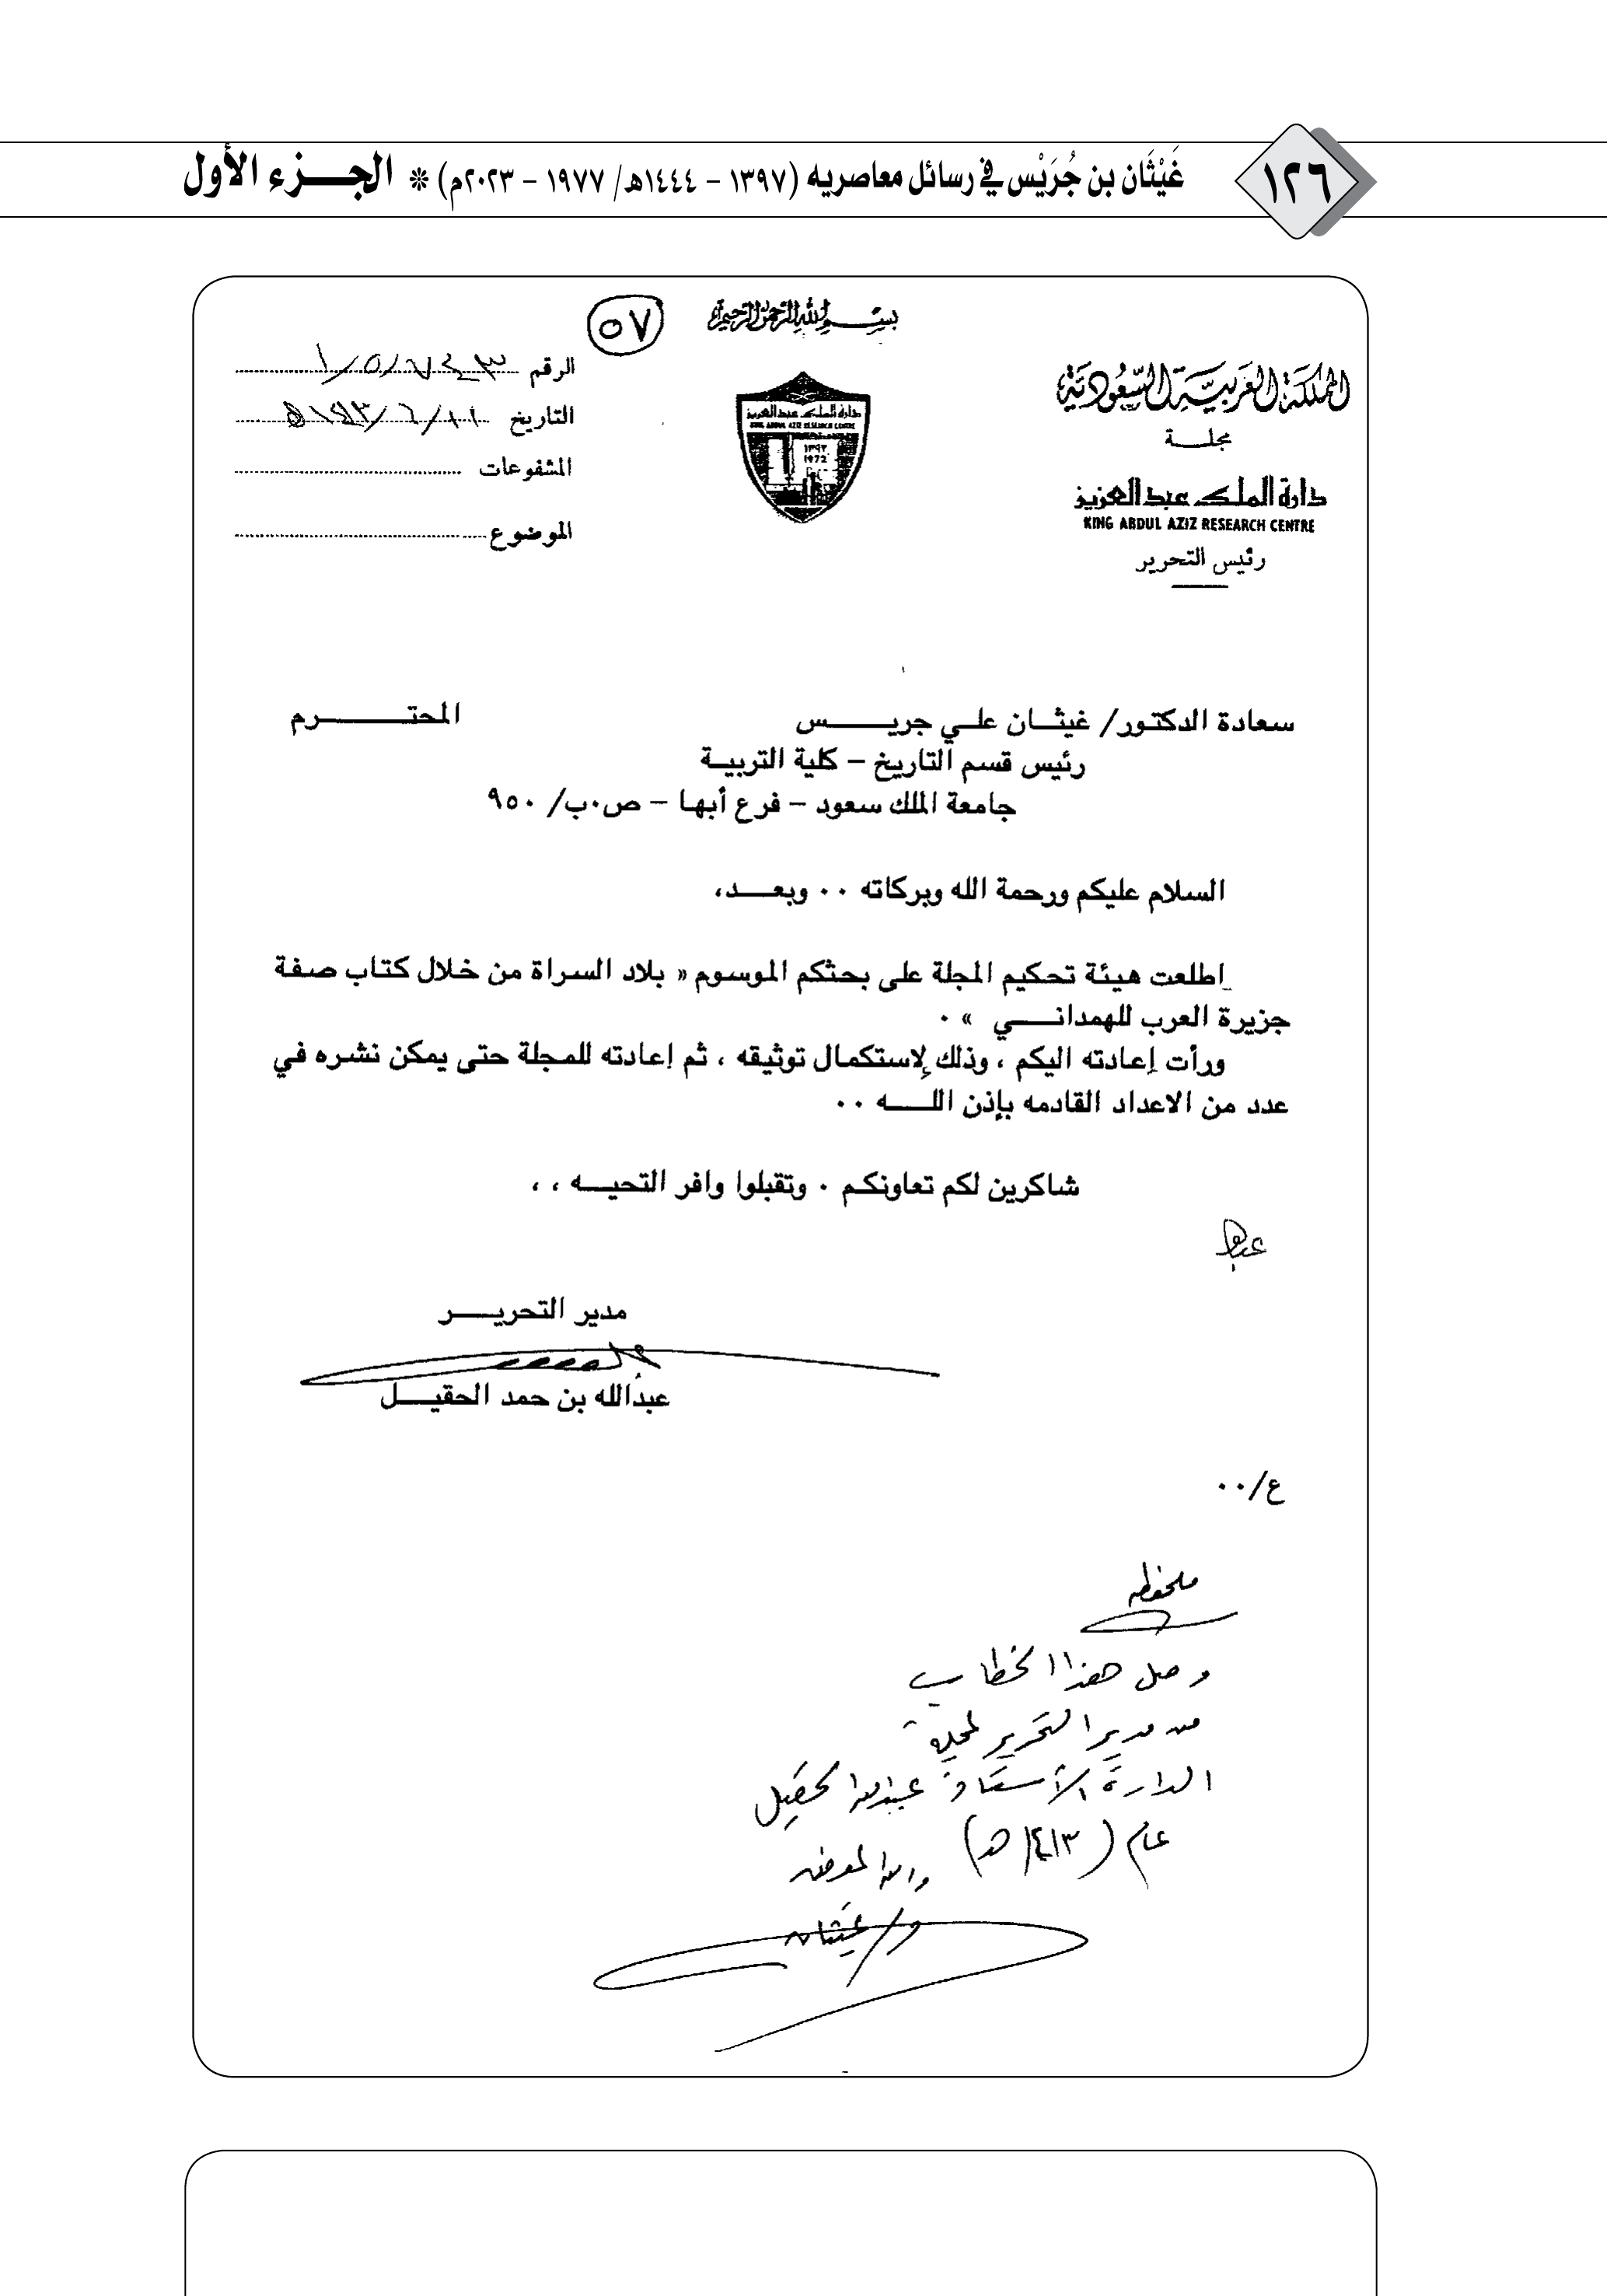 ١٢٦
غَيْثَان بن جُرَيْس في رسائل معاصريه (١٣٩٧ – ١٤٤٤هـ/ ١٩٧٧ – ٢٠٢٣م) * الجـــزء الأول
٥٧
بسم الله الرحمن الرحيم
المملكة العربية السعودية
مجلـــة
دارة الملك عبدالعزيز
KING ABDUL AZIZ RESEARCH CENTRE
رئيس التحرير
دارة الملك عبدالعزيز
KING ABDUL AZIZ RESEARCH CENTRE
١٣٩٢
1972
الرقم
التاريخ
المشفوعات
الموضوع
سعادة الدكتور/ غيثــان علــي جريــــــس المحتــــــــرم
رئيس قسم التاريخ – كلية التربيــة
جامعة الملك سعود – فرع أبهـا – ص٠ب/ ٩٥٠
السلام عليكم ورحمة الله وبركاته ٠٠ وبعــــد،
إطلعت هيئة تحكيم المجلة على بحثكم الموسوم « بلاد السراة من خلال كتاب صفة
جزيرة العرب للهمدانـــــي » ٠
ورأت إعادته اليكم ، وذلك لإستكمال توثيقه ، ثم إعادته للمجلة حتى يمكن نشره في
عدد من الاعداد القادمه بإذن اللـــــه ٠٠
شاكرين لكم تعاونكـم ٠ وتقبلوا وافر التحيـــه ، ،
مدير التحريـــــر
عبدالله بن حمد الحقيـــــل
ع/٠٠
ملحوظه
وصل هذا الخطاب
من مدير التحرير لمجلة
الدارة الأستاذ عبدالله الحقيل
عام (١٤١٣هـ) والله الموفق
د/ غيثان